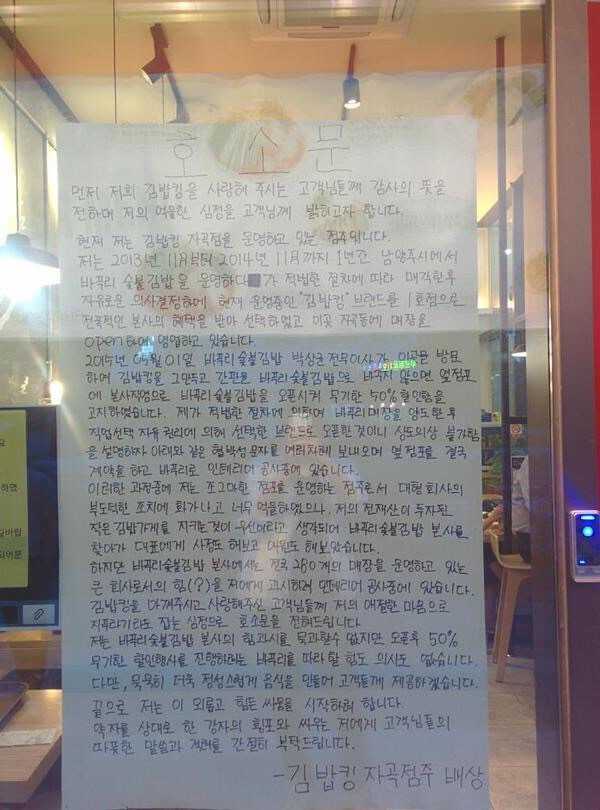 호소문
먼저 저희 김밥킹을 사랑해 주시는 고객님들께 감사의 뜻을
전하며 저의 억울한 심정을 고객님께 밝히고자 합니다.
현재 저는 김밥킹 자곡점을 운영하고 있는 점주입니다.
저는 2013년 11월부터 2014년 11월까지 1년간 남양주시에서
바푸리 숯불김밥을 운영하다 가 적법한 절차에 따라 매각한후
자유로운 의사결정하에 현재 운영중인 "김밥킹" 브랜드를 1호점으로
전폭적인 본사의 혜택을 받아 선택하였고 이곳 자곡동에 매장을
open하여 영업하고 있습니다.
2015년 05월 01일 바푸리숯불김밥 박상균 전무이사가 이곳을 방문
하여 김밥킹을 그만두고 간판을 바푸리숯불김밥으로 바꾸지 않으면 옆점포
에 본사직영으로 바푸리숯불김밥을 오픈시켜 무기한 50%할인함을
고지하였습니다. 제가 적법한 절차에 의하여 바푸리매장을 양도한 후
직업선택 자유 권리에 의해 선택한 브랜드로 오픈한 것이니 상도의상 불가함
을 설명하자 아래와 같은 협박성 문자를 여러차례 보내오며 옆 점포를 결국
계약을 하고 바푸리로 인테리어 공사중에 있습니다.
이러한 과정중에 저는 조그마한 점포를 운영하는 점주로서 대형회사의
부도덕한 조치에 화가나고 너무 억울하였으나. 저의 전재산이 투자된
작은 김밥가게를 지키는것이 우선이라고 생각되어 바푸리숯불김밥 본사를
찾아가 대표에게 사정도 해보고 애원도 해보았습니다.
하지만 바푸리숯불김밥 본사에서는 전국 280개의 매장을 운영하고 있는
큰 회사로서의 힘(?)을 저에게 과시하며 인테리어 공사중에 있습니다.
김밥킹을 아껴주시고 사랑해주신 고객님들께 저의 애절한 마음으로
지푸라기라도 잡는 심정으로 호소문을 전해드립니다.
저는 바푸리숯불김밥 본사의 힘과시를 묵과할수 없지만 오픈후 50%
무기한 할인행사를 진행하려는 바푸리를 따라할 힘도 의사도 없습니다.
다만, 묵묵히 더욱 정성스럽게 음식을 만들어 고객들께 제공하겠습니다.
끝으로 저는 이 외롭고 힘든 싸움을 시작하려 합니다.
약자를 상대로 한 강자의 횡포와 싸우는 저에게 고객님들의
따뜻한 말씀과 격려를 간절히 부탁드립니다.
-김밥킹 자곡점주 배상